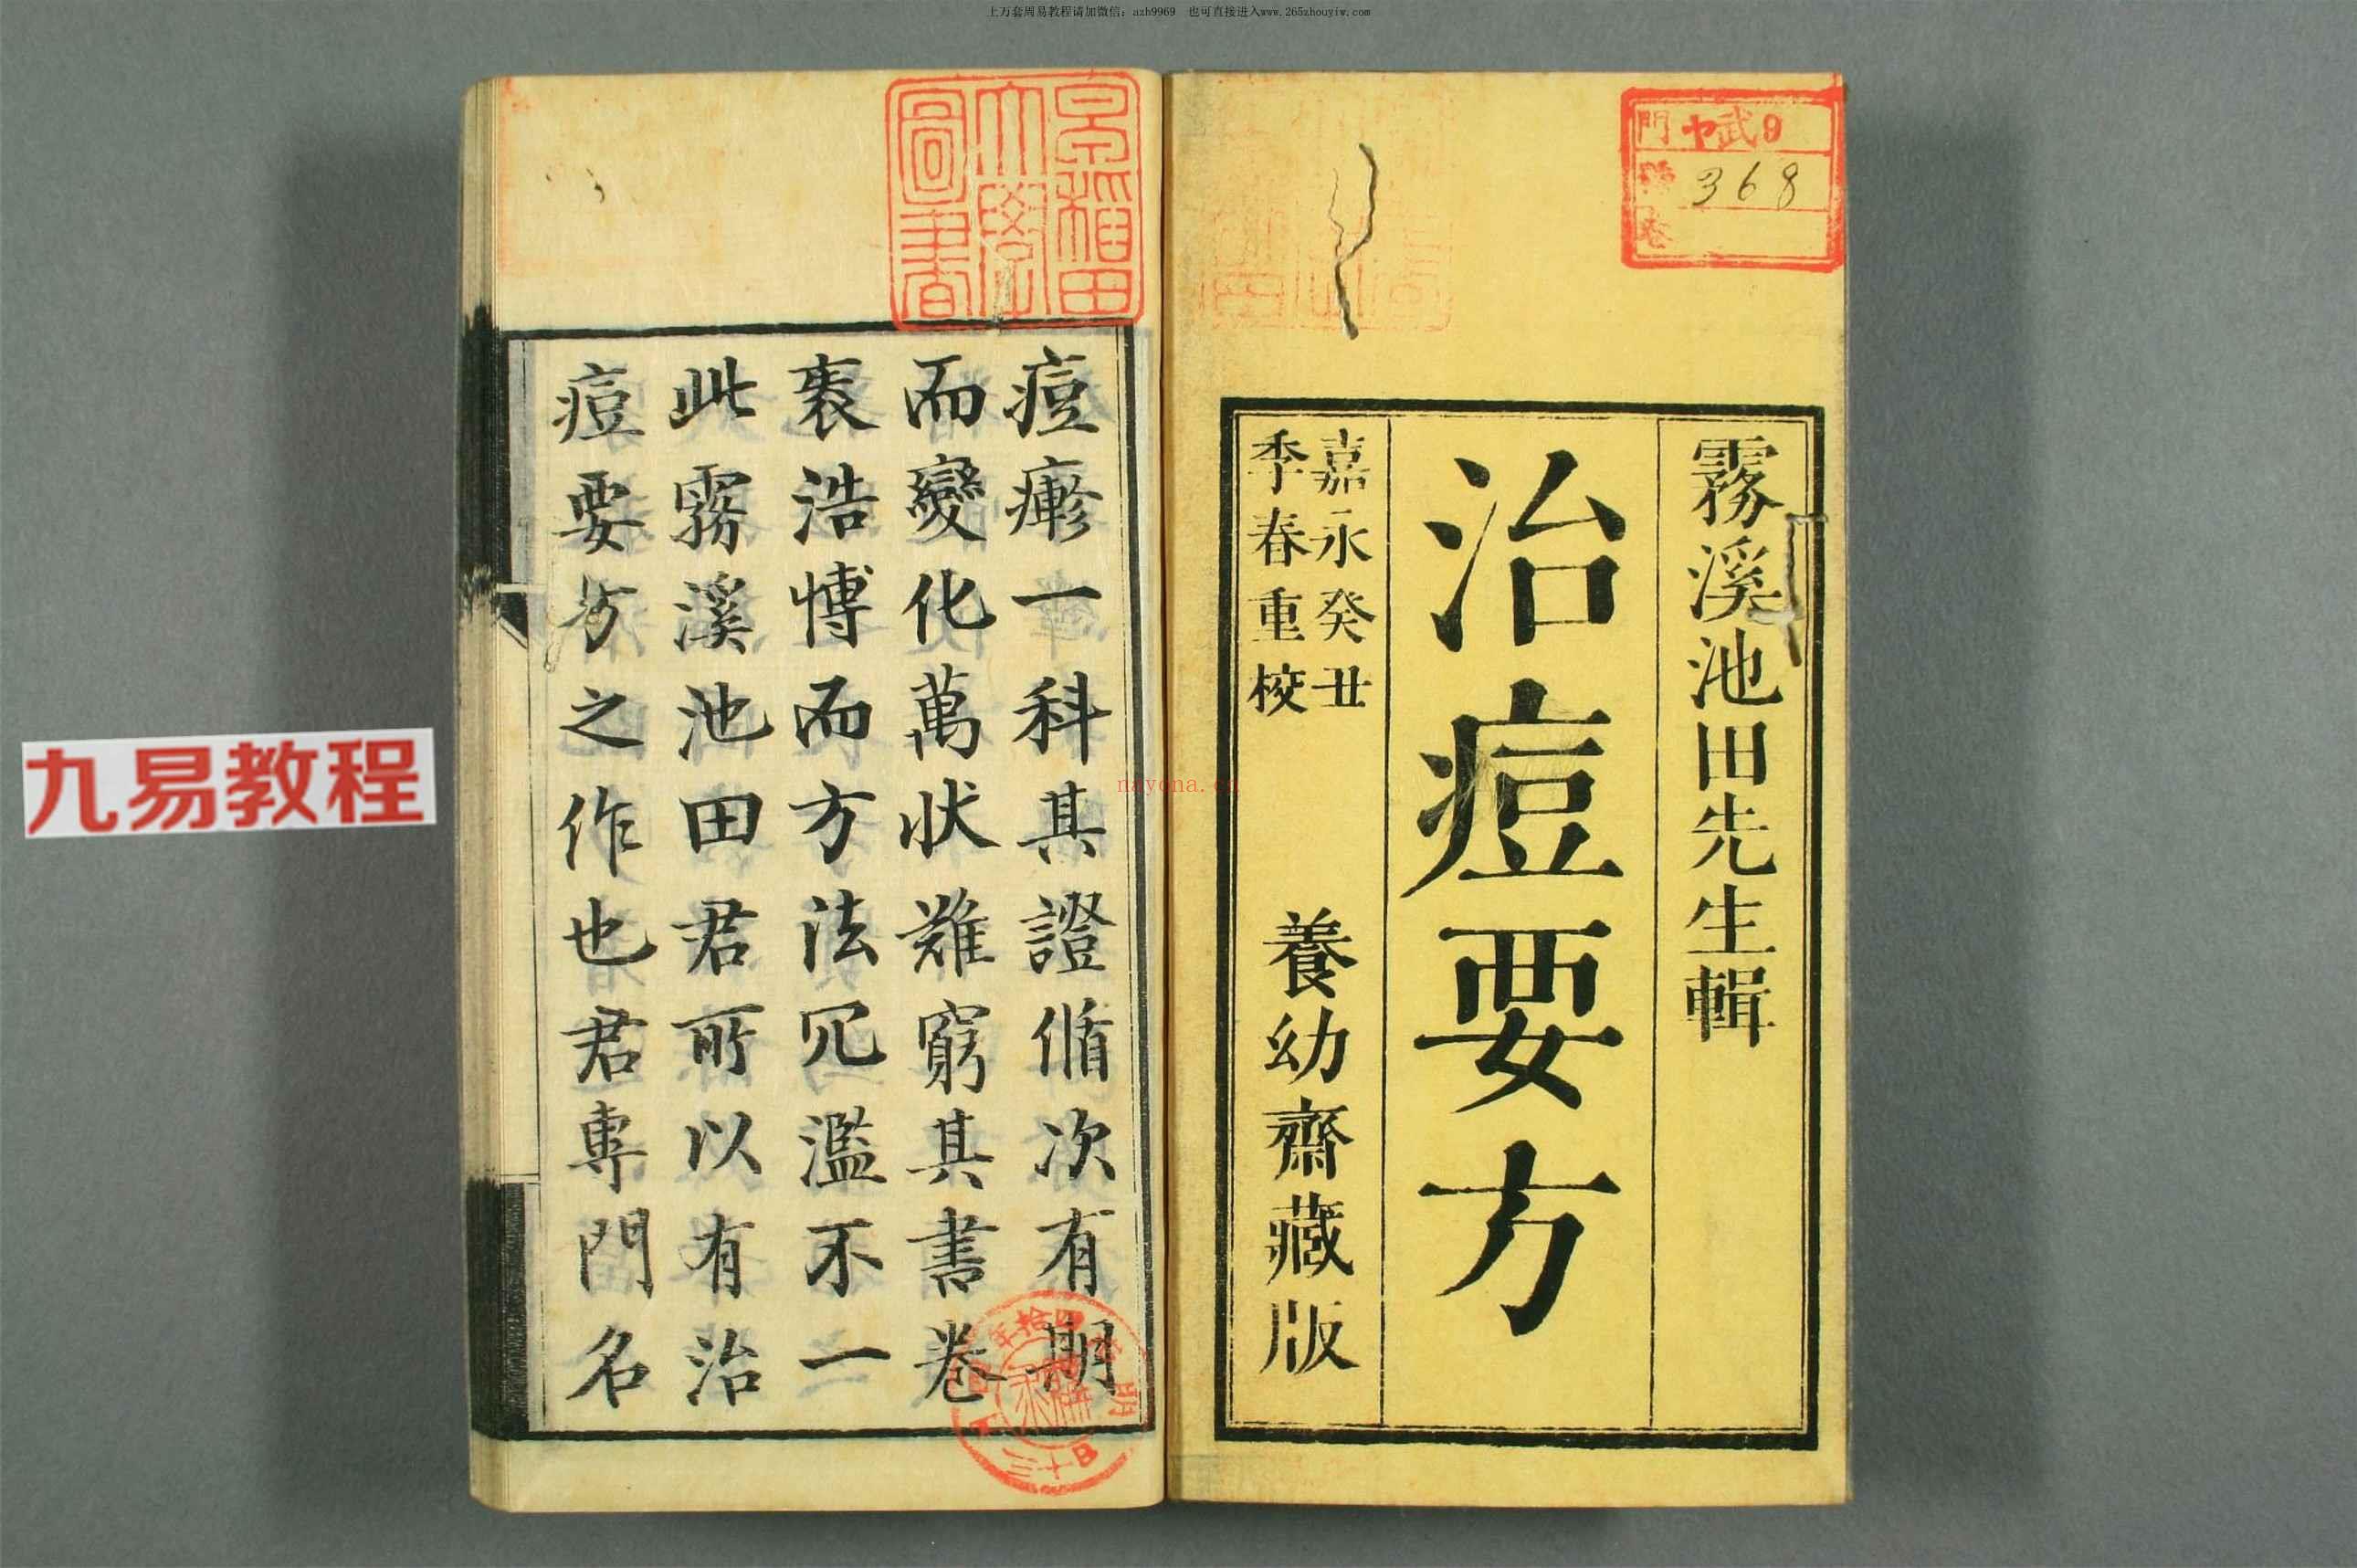 上万套周易教程请加微信：azh9969　也可直接进入www.265zhouyiw.com
門 ヤ武9
368
卷
霧溪池田先生輯
治痘要方
嘉永癸丑
季春重校
養幼齋藏版
早稻田
大學
圖書
痘瘮一科其證脩次有期
而變化萬狀難窮其書卷
袠浩博而方法冗濫不一
此霧溪池田君所以有治
痘要方之作也君專門名
九易教程
nayona.cn